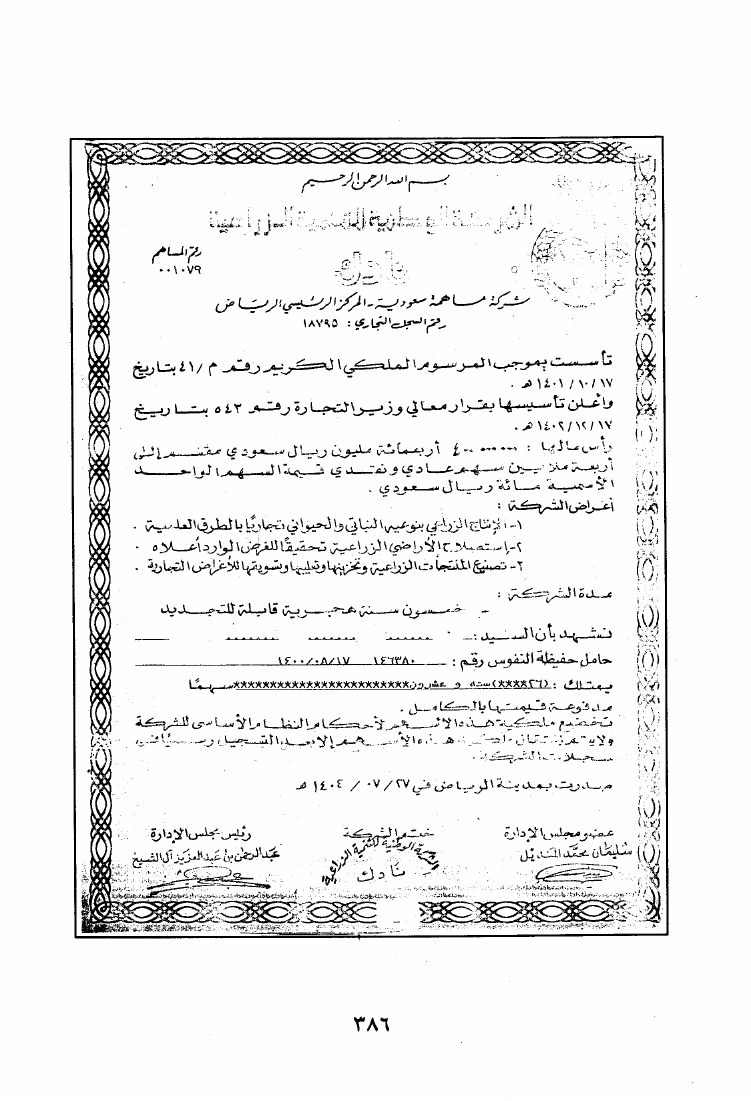 بسم الله الرحمن الرحيم
رقم المساهم
٠٠١٠٧٩
شركة مساهمة سعودية - المركز الرئيسي الرياض
رقم السجل التجاري : ١٨٧٩٥
تأسست بموجب المرسوم الملكي الكريم رقم م /٤١ بتاريخ
١٤٠١/١٠/١٧ هـ .
وأعلن تأسيسها بقرار معالي وزير التجارة رقم ٥٤٣ بتاريخ
١٤٠٢/١٢/١٧ هـ .
رأس مالها : ٤٠٠,٠٠٠,٠٠٠ أربعمائة مليون ريال سعودي مقسم إلى
أربعة ملايين سهم عادي ونقدي قيمة السهم الواحد
الأسمية مائة ريال سعودي .
أغراض الشركة :
١- الإنتاج الزراعي بنوعيه النباتي والحيواني تجاريًا بالطرق العلمية .
٢- إستصلاح الأراضي الزراعية تحقيقًا للغرض الوارد أعلاه .
٣- تصنيع المنتجات الزراعية وتخزينها وتعليبها وتسويقها للأغراض التجارية .
مدة الشركة :
خمسون سنة هجرية قابلة للتجديد
نشهد بأن السيد :
حامل حفيظة النفوس رقم : ١٤٦٣٨٠ ١٤٠٠/٠٨/١٧
يمتلك : (٢٦****) ستة و عشرون************************سهمًا
مدفوعة قيمتها بالكامل .
تخضع ملكية هذه الأسهم لأحكام النظام الأساسي للشركة
ولا هذه الأسهم إلا بعد التسجيل
سجلات الشركة .
صدرت بمدينة الرياض في ٢٧/ ٠٧ / ١٤٠٤ هـ
عضو مجلس الإدارة
ختم الشركة
رئيس مجلس الإدارة
سليمان محمد المنديل
الشركة الوطنية للتنمية الزراعية
نادك
عبد الرحمن بن عبد العزيز آل الشيخ
٣٨٦